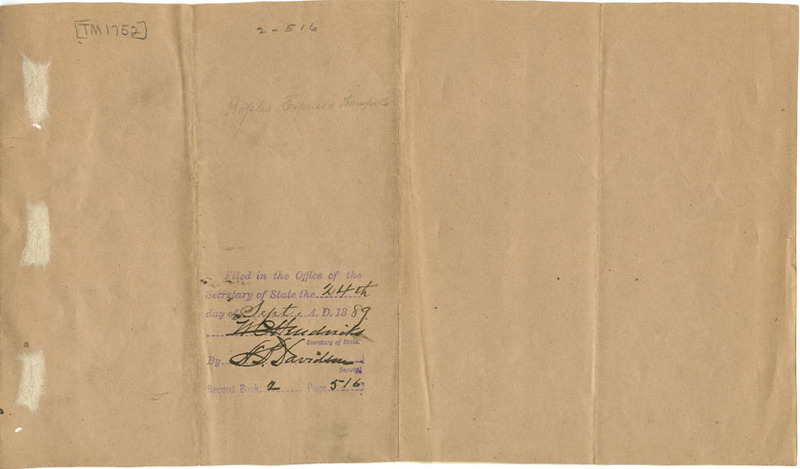 [TM1752]
2-516
Peoples
Filed in the Office of the
Secretary of State the 24th
day of Sept. A. D. 1889
W C Hendricks
Secretary of State.
By Davidson
Deputy.
Record Book 2 Page 516